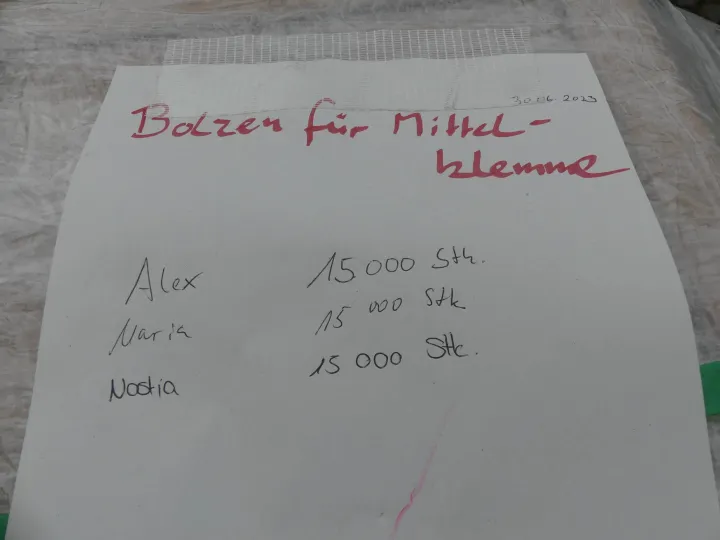 30.06.2023
Bolzen für Mittel-
klemme
Alex 15.000 Stk.
Maria 15 000 Stk
Nastia 15 000 Stk.